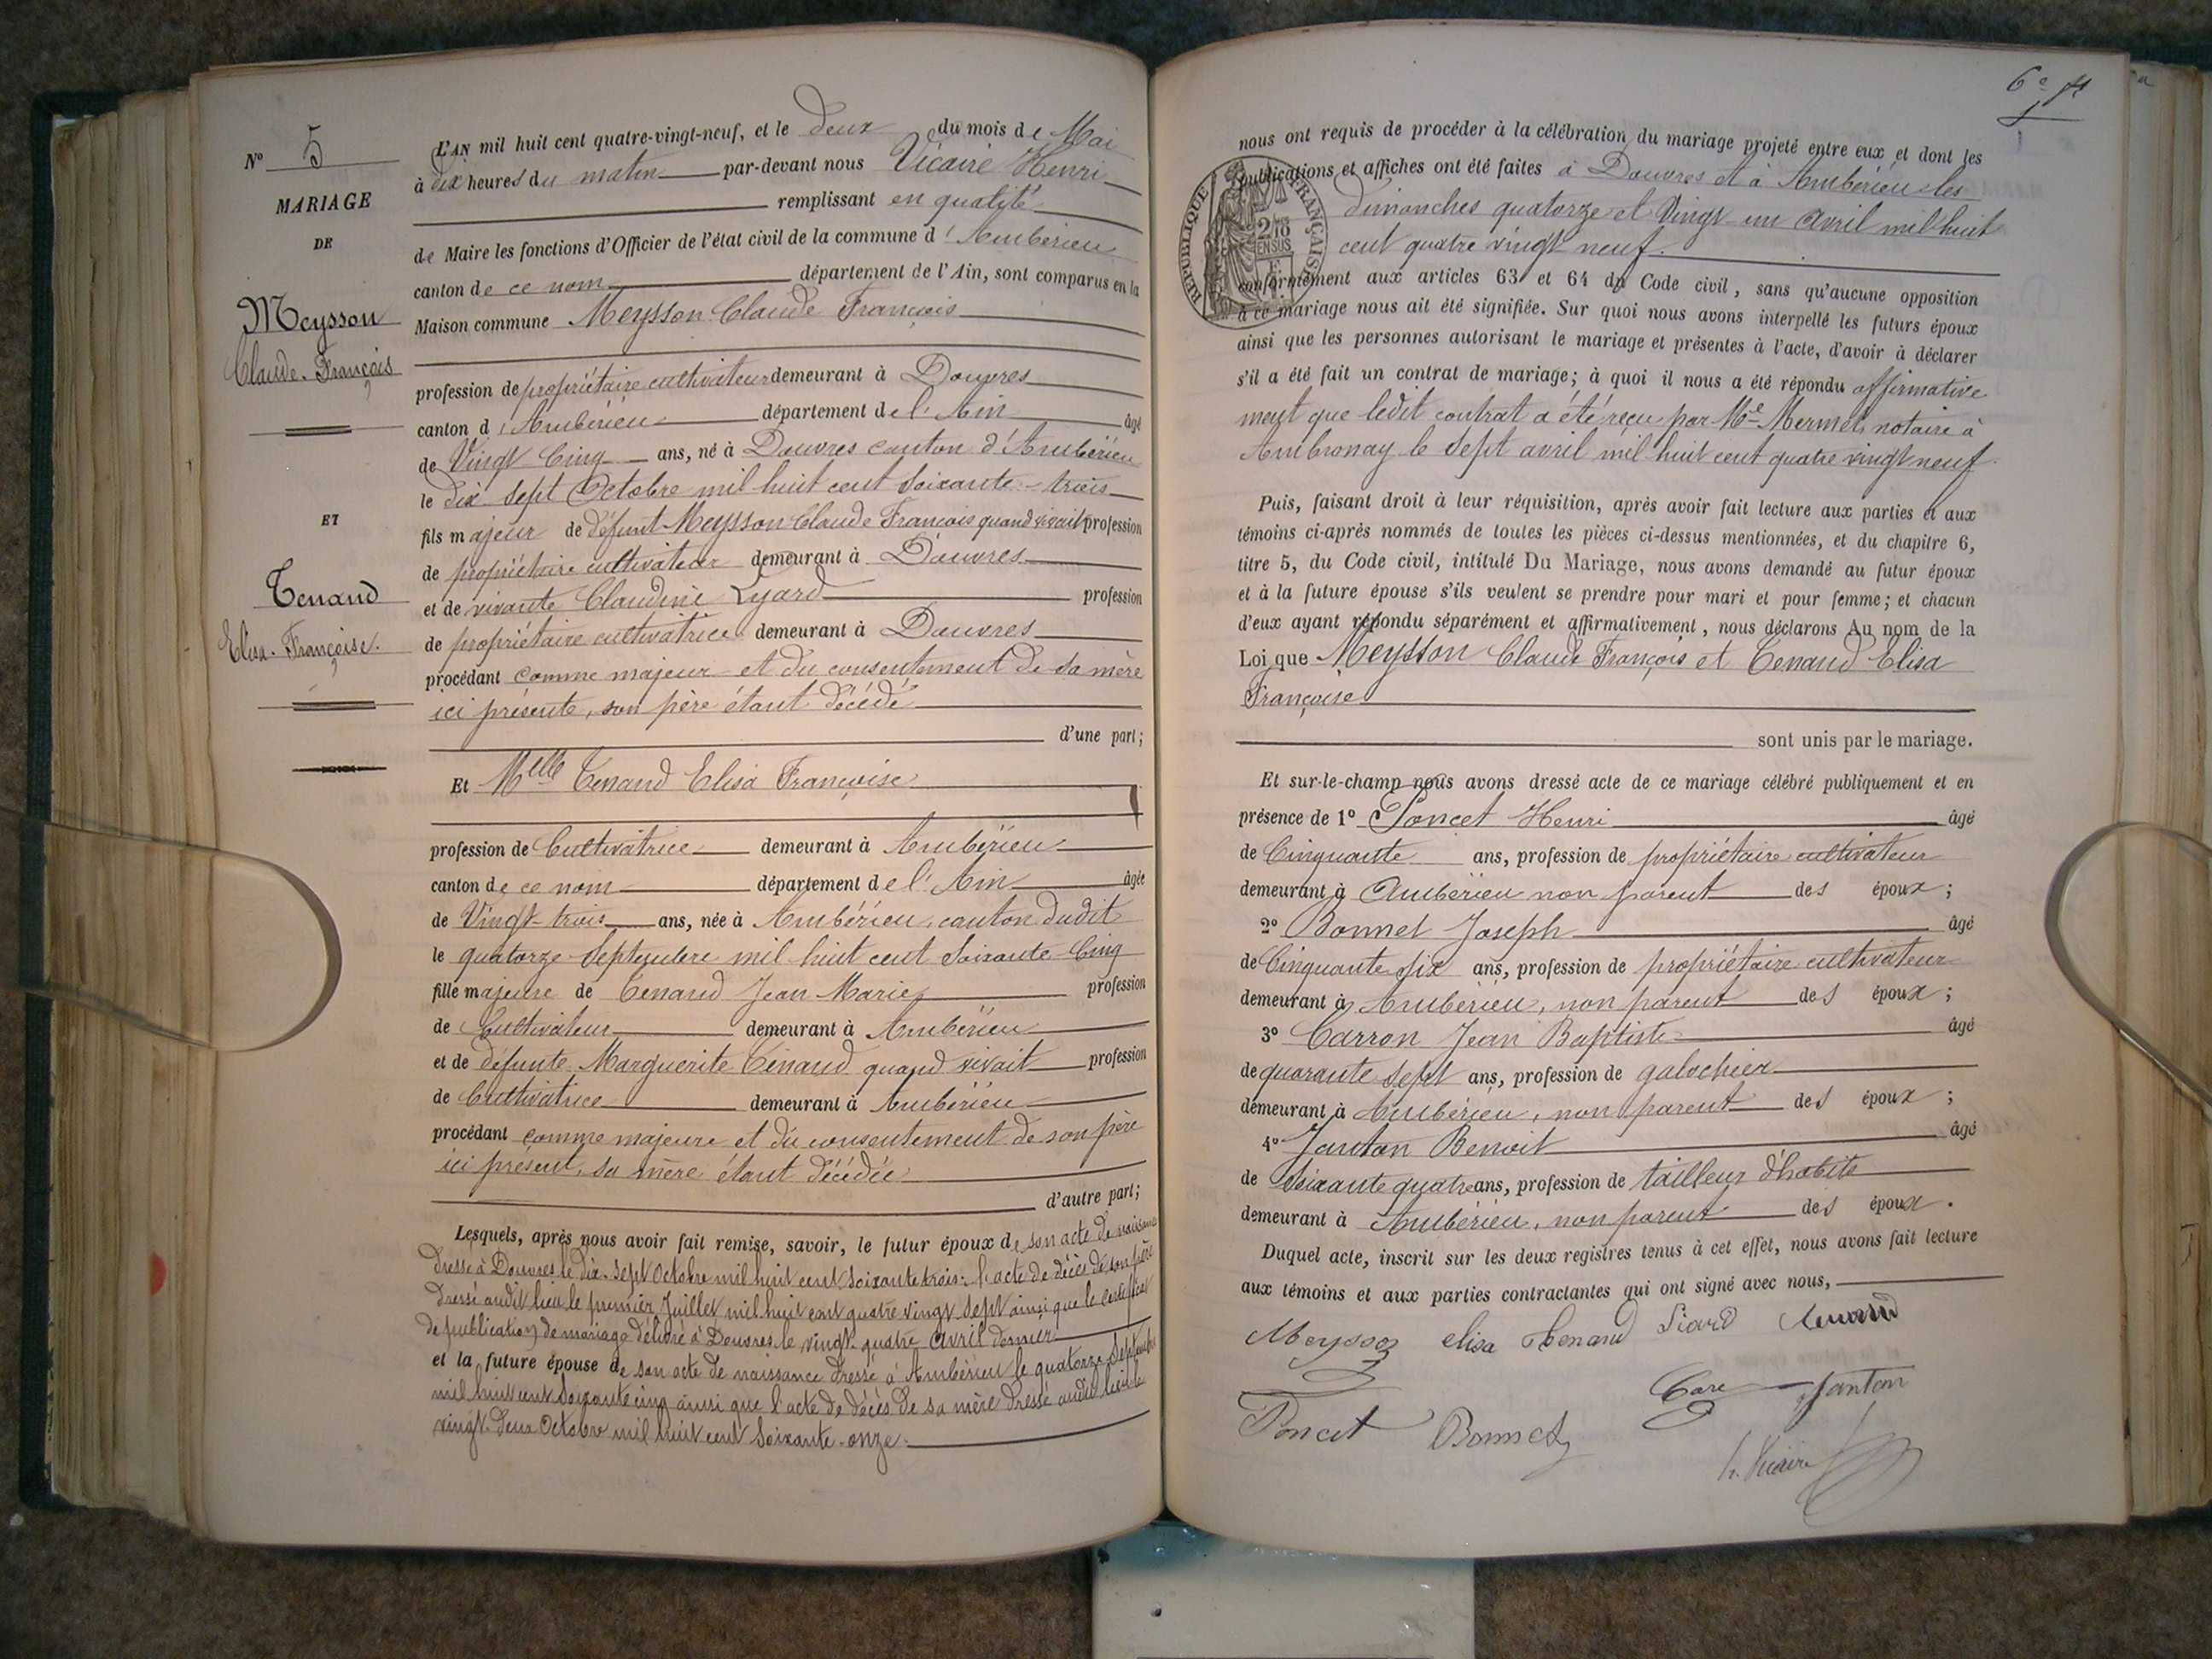 N° 5
MARIAGE
DE
Meysson
Claude. François
ET
Tenand
Elisa. Françoise.
L'AN mil huit cent quatre-vingt-neuf, et le deux du mois de Mai
à dix heures du matin par-devant nous Vicaire Henri
remplissant en qualité
de Maire les fonctions d'Officier de l'état civil de la commune d'Ambérieu
canton de ce nom département de l'Ain, sont comparus en la
Maison commune Meysson Claude François
profession de propriétaire cultivateur demeurant à Douvres
canton d'Ambérieu département de l'Ain âgé
de Vingt-Cinq ans, né à Douvres canton d'Ambérieu
le dix sept Octobre mil huit cent soixante-trois
fils majeur de défunt Meysson Claude François quand vivait profession
de propriétaire cultivateur demeurant à Douvres
et de vivante Claudine Lyard profession
de propriétaire cultivatrice demeurant à Douvres
procédant comme majeur et du consentement de sa mère
ici présente, son père étant décédé
d'une part;
Et Melle Tenand Elisa Françoise
profession de Cultivatrice demeurant à Ambérieu
canton de ce nom département de l'Ain âgée
de Vingt-trois ans, née à Ambérieu, canton dudit
le quatorze Septembre mil huit cent soixante-Cinq
fille majeure de Tenand Jean Marie profession
de Cultivateur demeurant à Ambérieu
et de défunte Marguerite Tenand quand vivait profession
de Cultivatrice demeurant à Ambérieu
procédant comme majeure et du consentement de son père
ici présent, sa mère étant décédée
d'autre part;
Lesquels, après nous avoir fait remise, savoir, le futur époux de son acte de naissance
dressé à Douvres le dix-sept Octobre mil huit cent soixante trois: l'acte de décès de son père
dressé audit lieu le premier Juillet mil huit cent quatre vingt sept ainsi que le certificat
de publication de mariage délivré à Douvres le vingt-quatre avril dernier
et la future épouse de son acte de naissance dressé à Ambérieu le quatorze Septembre
mil huit cent soixante cinq ainsi que l'acte de décès de sa mère dressé audit lieu le
vingt-deux Octobre mil huit cent soixante-onze.
nous ont requis de procéder à la célébration du mariage projeté entre eux et dont les
publications et affiches ont été faites à Douvres et à Ambérieu les
dimanches quatorze et Vingt-un avril mil huit
cent quatre vingt neuf.
RÉPUBLIQUE FRANÇAISE
conformément aux articles 63 et 64 du Code civil, sans qu'aucune opposition
à ce mariage nous ait été signifiée. Sur quoi nous avons interpellé les futurs époux
ainsi que les personnes autorisant le mariage et présentes à l'acte, d'avoir à déclarer
s'il a été fait un contrat de mariage; à quoi il nous a été répondu affirmative
ment que ledit contrat a été reçu par Me Mermet notaire à
Ambronay le sept avril mil huit cent quatre vingt neuf.
Puis, faisant droit à leur réquisition, après avoir fait lecture aux parties et aux
témoins ci-après nommés de toutes les pièces ci-dessus mentionnées, et du chapitre 6,
titre 5, du Code civil, intitulé Du Mariage, nous avons demandé au futur époux
et à la future épouse s'ils veulent se prendre pour mari et pour femme; et chacun
d'eux ayant répondu séparément et affirmativement, nous déclarons Au nom de la
Loi que Meysson Claude François et Tenand Elisa
Françoise
sont unis par le mariage.
Et sur-le-champ nous avons dressé acte de ce mariage célébré publiquement et en
présence de 1° Poncet Henri âgé
de Cinquante ans, profession de propriétaire cultivateur
demeurant à Ambérieu non parent des époux;
2° Bonnet Joseph âgé
de Cinquante six ans, profession de propriétaire cultivateur
demeurant à Ambérieu, non parent des époux;
3° Carron Jean Baptiste âgé
de quarante sept ans, profession de galochier
demeurant à Ambérieu, non parent des époux;
4° Janton Benoit âgé
de Soixante quatre ans, profession de tailleur d'habits
demeurant à Ambérieu, non parent des époux.
Duquel acte, inscrit sur les deux registres tenus à cet effet, nous avons fait lecture
aux témoins et aux parties contractantes qui ont signé avec nous,
Meysson elisa Thenand Liard
Janton
Poncet Bonnet
h. Vicaire